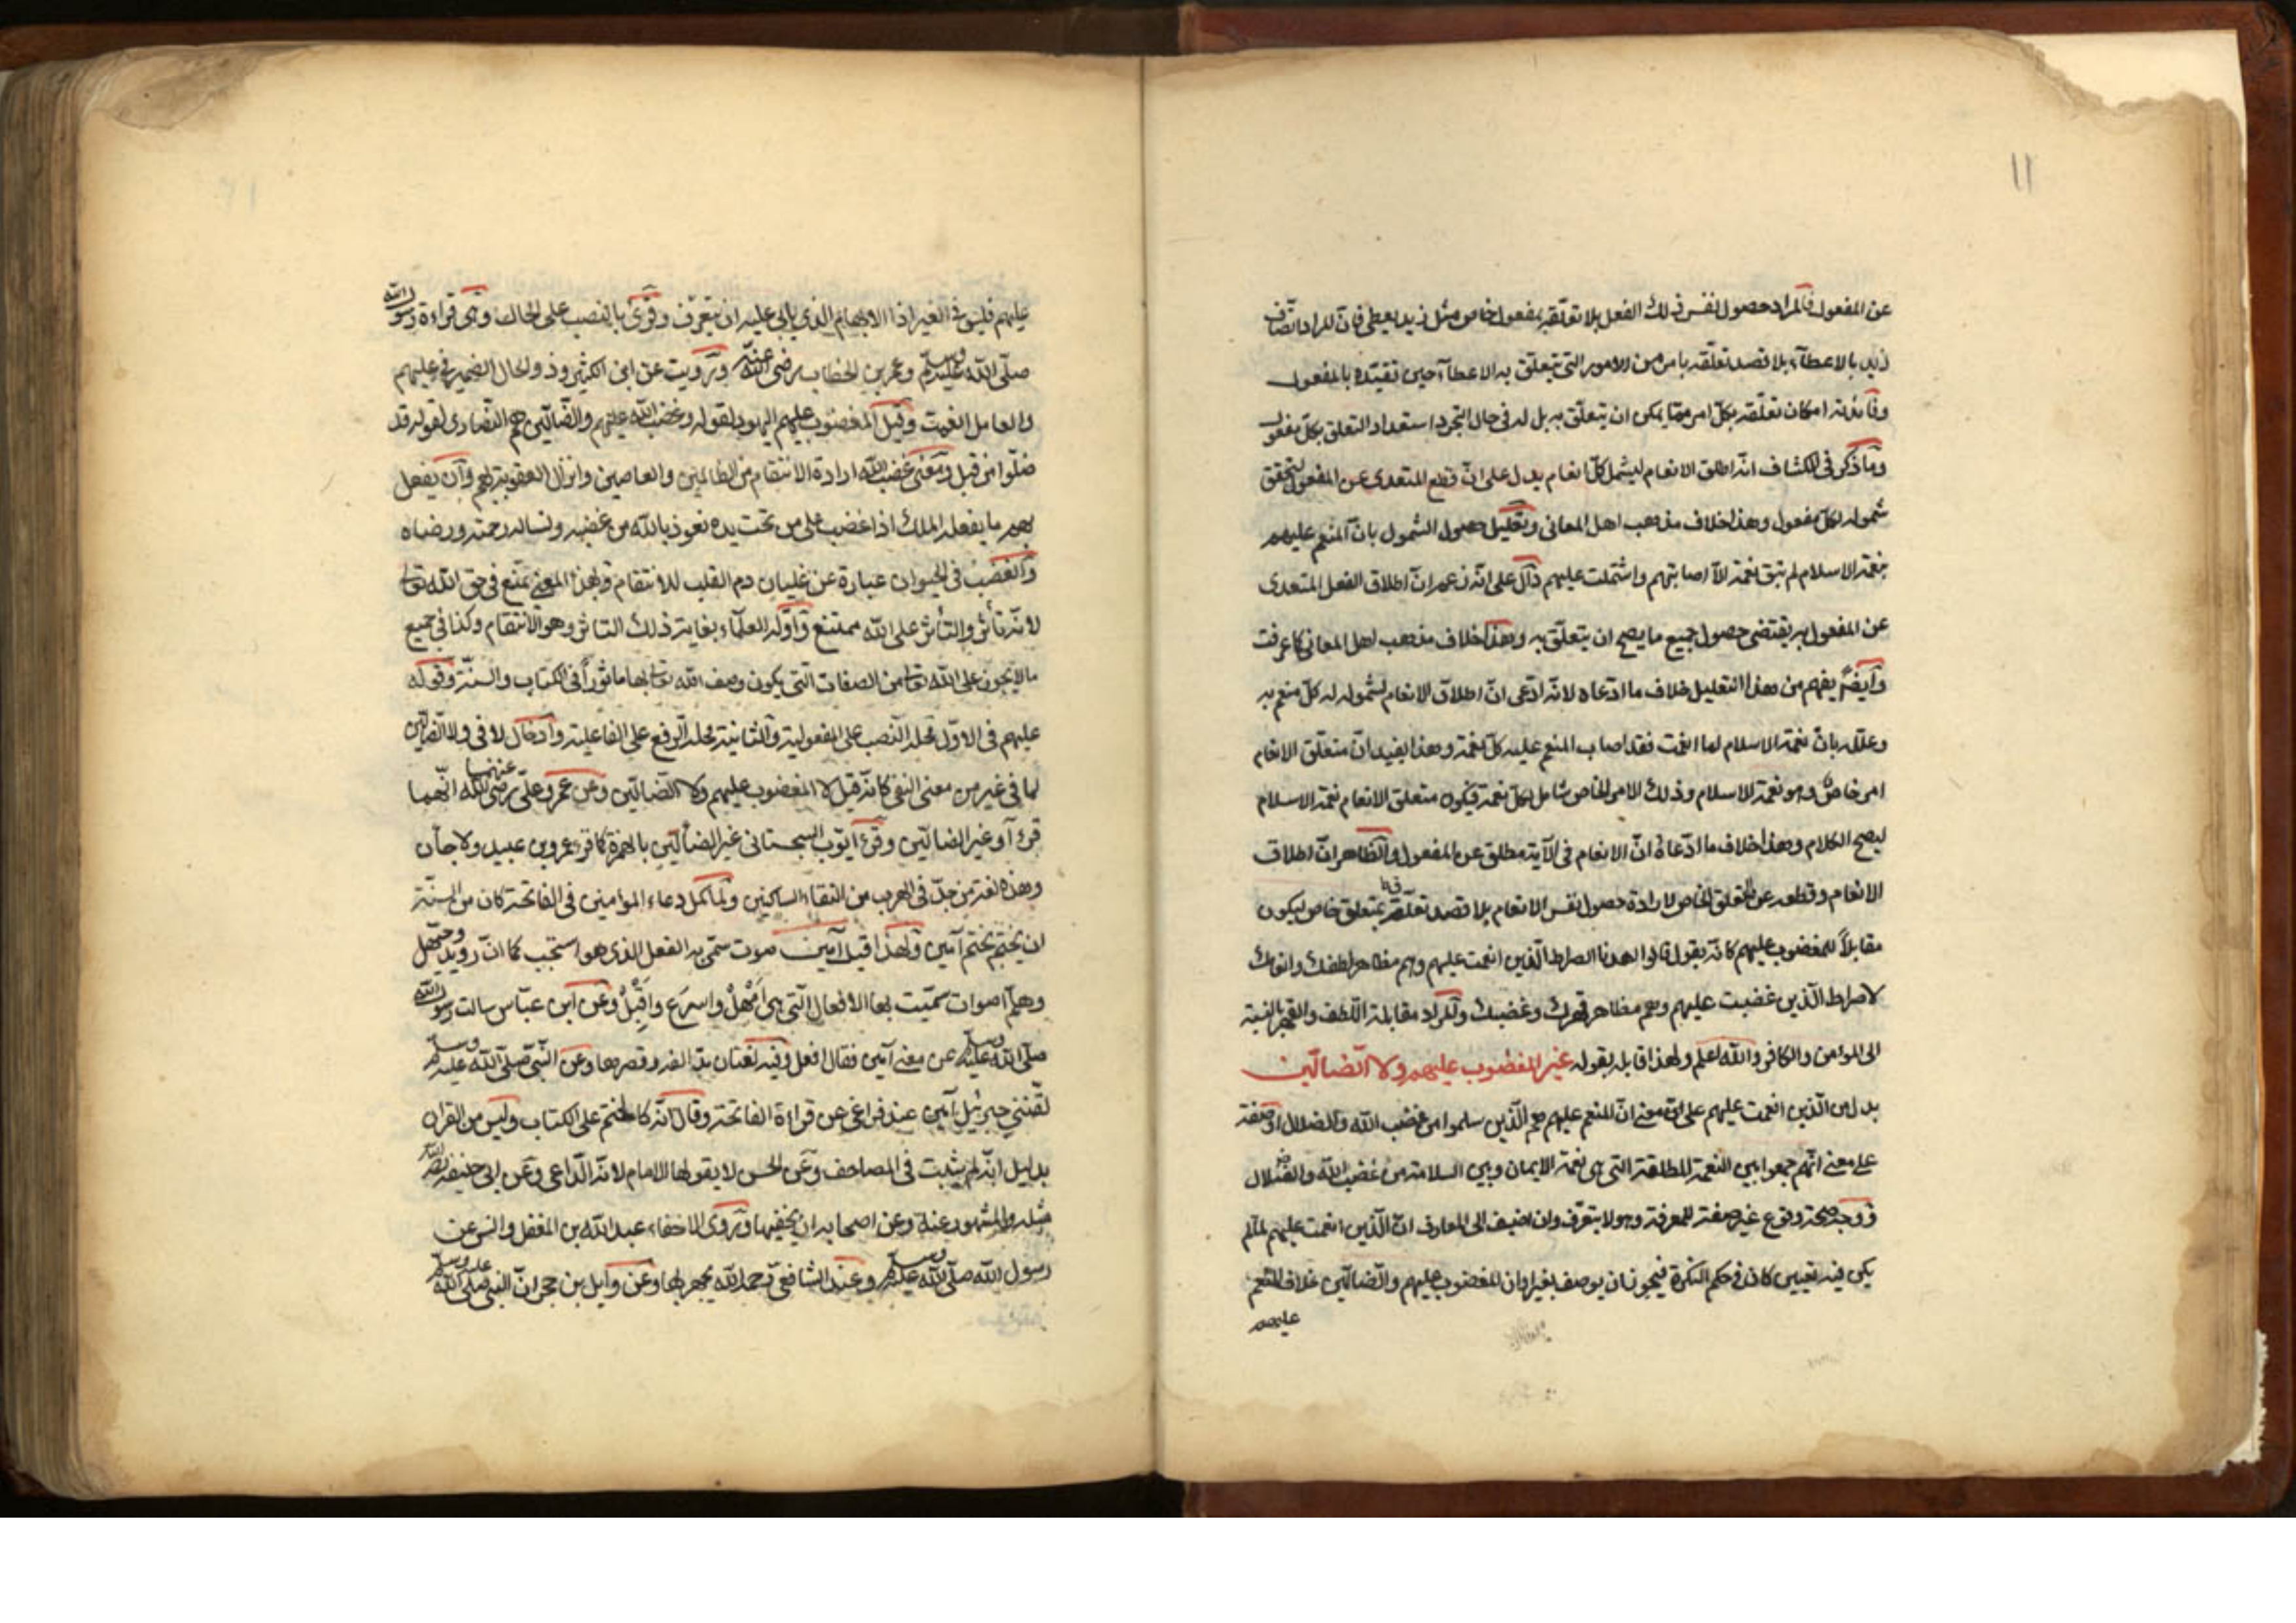 ١١
عن المفعول فالمراد حصول نفس ذلك الفعل بلا تعلقه بمفعول خاص مثل زيد يعطي فان المراد اتصاف
زيد بالاعطاء بلا قصد تعلقه بامر من الامور التي يتعلق به الاعطاء حين تقيده بالمفعول
وفائدته امكان تعلقه بكل امر مما يمكن ان يتعلق به بل له في حال التجرد استعداد التعلق بكل مفعول
وما ذكر في الكشاف انه اطلق الانعام ليشمل كل انعام يدل على ان قطع المتعدى عن المفعول لتحقق
شموله لكل مفعول وهذا خلاف مذهب اهل المعاني وتعليل حصول الشمول بان المنعم عليهم
بنعمة الاسلام لم تبق نعمة الا اصابتهم واشتملت عليهم دال على انه زعم ان اطلاق الفعل المتعدى
عن المفعول به يقتضى حصول جميع ما يصح ان يتعلق به وهذا خلاف مذهب اهل المعاني كما عرفت
وايضا يفهم من هذا التعليل خلاف ما ادعاه لانه ادعى ان اطلاق الانعام لشموله له كل منعم به
وعلله بان نعمة الاسلام لما انعمت فقد اصاب المنعم عليه كل نعمة وهذا يفيد ان متعلق الانعام
امر خاص وهو نعمة الاسلام وذلك الامر الخاص شامل لكل نعمة فيكون متعلق الانعام نعمة الاسلام
ليصح الكلام وهذا خلاف ما ادعاه ان الانعام في الآية مطلق عن المفعول والظاهر ان اطلاق
الانعام وقطعه عن التعلق الخاص لارادة حصول نفس الانعام بلا قصد تعلقه بمتعلق خاص ليكون
مقابلاً للمغضوب عليهم كانه يقول قالوا اهدنا الصراط الذين انعمت عليهم وهم مظاهر لطفك وانعامك
لا صراط الذين غضبت عليهم وهم مظاهر قهرك وغضبك والمراد مقابلة اللطف والقهر بالنسبة
الى المؤمن والكافر والله اعلم ولهذا قابله بقوله غير المغضوب عليهم ولا الضالين
بدل من الذين انعمت عليهم على معنى ان المنعم عليهم هم الذين سلموا من غضب الله والضلال او صفة
على معنى انهم جمعوا بين النعمة المطلقة التي هى نعمة الايمان وبين السلامة من غضب الله والضلال
ووجه صحة وقوع غير صفة للمعرفة وهو لا يتعرف وان اضيف الى المعارف ان الذين انعمت عليهم لما لم
يكن فيه تعيين كان في حكم النكرة فيجوز ان يوصف بغير او ان المغضوب عليهم والضالين خلاف المنعم
عليهم
عليهم فليس في الغير اذا الابهام الذي يابى عليه ان يتعرف وقرئ بالنصب على الحال وهى قراءة رسول الله
صلى الله عليه وسلم وعمر بن الخطاب رضى الله عنه ورويت عن ابن الكثير وذو الحال الضمير في عليهم
والعامل انعمت وقيل المغضوب عليهم اليهود لقوله وغضب الله عليهم والضالين هم النصارى لقوله قد
ضلوا من قبل ومعنى غضب الله ارادة الانتقام من الظالمين والعاصين وانزال العقوبة بهم وان يفعل
بهم ما يفعله الملك اذا غضب على من تحت يده نعوذ بالله من غضبه ونساله رحمته ورضاه
والغضب في الحيوان عبارة عن غليان دم القلب للانتقام وبهذا المعنى يمتنع في حق الله تعالى
لانه تأثر والتأثر على الله ممتنع واوله العلماء بغاية ذلك التاثر وهو الانتقام وكذا في جميع
ما لا يجوز على الله تعالى من الصفات التي يكون وصف الله تعالى بها ماثوراً في الكتاب والسنة وقوله
عليهم في الاول محله النصب على المفعولية والثانية محله الرفع على الفاعلية وادخال لا في ولا الضالين
لما في غير من معنى النفي كانه قيل لا المغضوب عليهم ولا الضالين وعن عمر وعلى رضى الله عنهما انهما
قرءآ وغير الضالين وقرئ ايوب السجستاني غير الضألين بالهمزة كما قرء عمرو بن عبيد ولا جأن
وهذه لغة من جد في الهرب من التقاء الساكنين ولما كمل دعاء المؤمنين في الفاتحة كان من السنة
ان يختم بختم آمين ولهذا قيل آمين صوت سمى به الفعل الذي هو استجب كما ان رويد وحيهل
وهلم اصوات سميت بها الافعال التي هى امهل واسرع واقبل وعن ابن عباس سالت رسول الله
صلى الله عليه وسلم عن معنى آمين فقال افعل وفيه لغتان مد الفه وقصرها وعن النبي صلى الله عليه وسلم
لقننى جبرئيل آمين عند فراغى عن قراءة الفاتحة وقال انه كالختم على الكتاب وليس من القرآن
بدليل انه لم يثبت في المصاحف وعن الحسن لا يقولها الامام لانه الداعى وعن ابى حنيفة رحمه الله
مثله والمشهور عنه وعن اصحابه ان يخفيها وروى الاخفاء عبد الله بن المغفل وانس عن
رسول الله صلى الله عليه وسلم وعند الشافعى رحمه الله يجهر بها وعن وايل بن حجر ان النبي صلى الله عليه وسلم